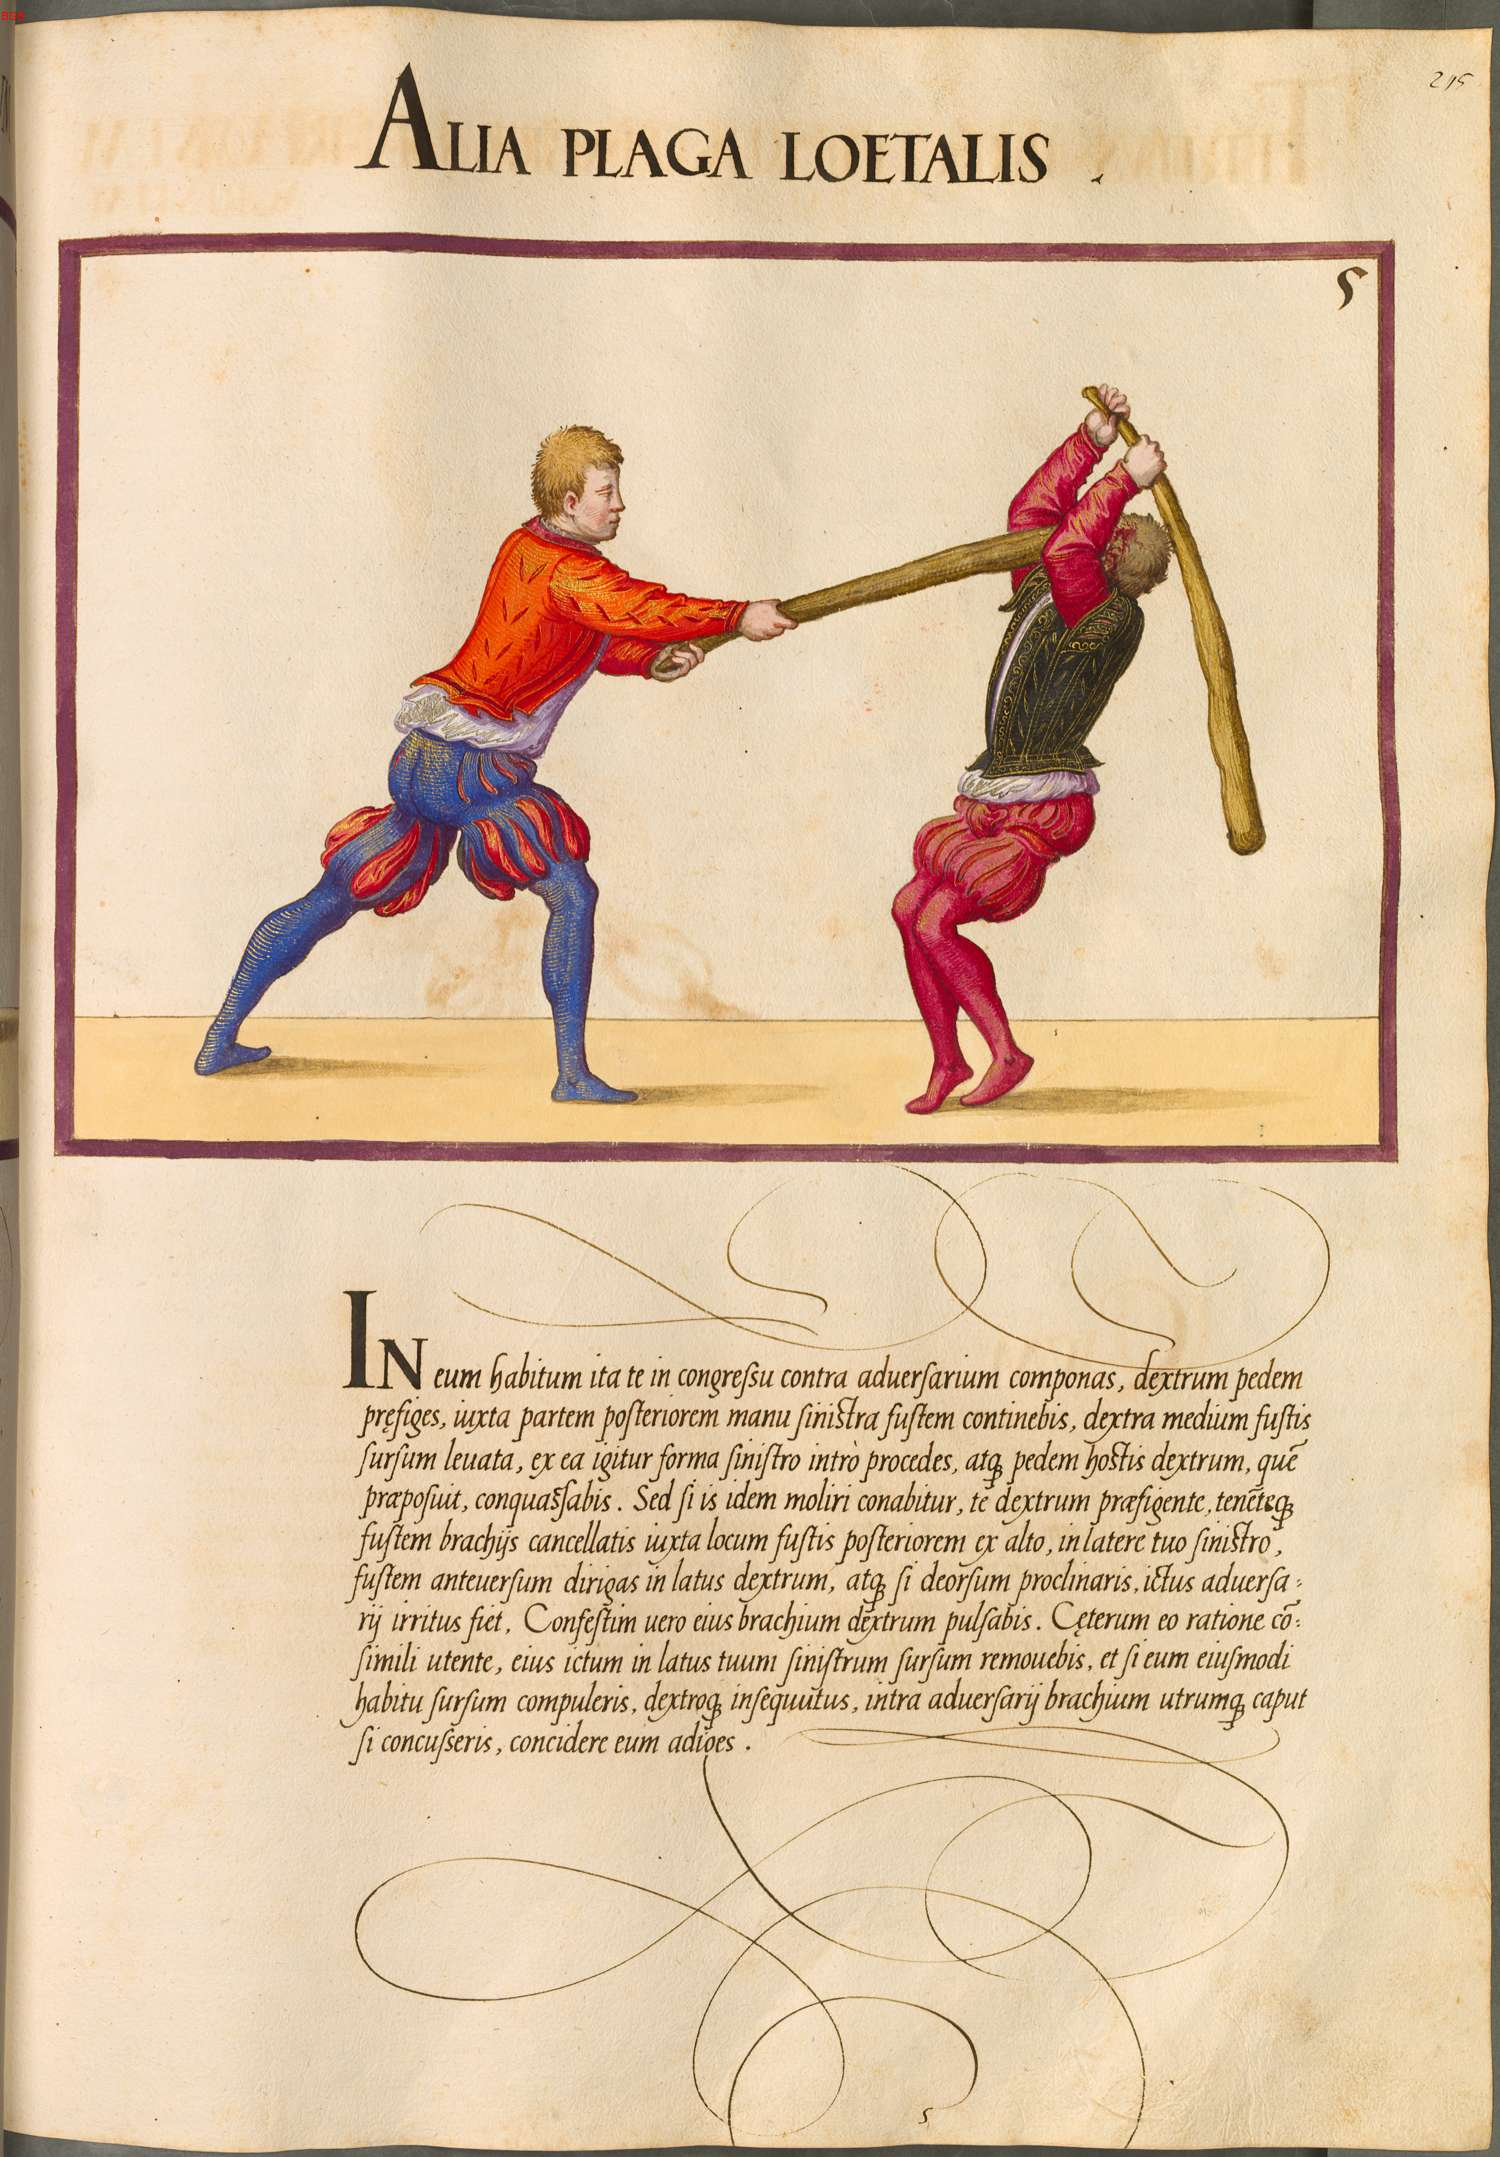 215
ALIA PLAGA LOETALIS .
5
IN eum habitum ita te in congreſsu contra aduerſarium componas, dextrum pedem
pręfiges, iuxta partem poſteriorem manu ſiniſtra fuſtem continebis, dextra medium fuſtis
ſurſum leuata, ex ea igitur forma ſiniſtro intrò procedes, atq̃ pedem hoſtis dextrum, quē
præpoſuit, conquaſſabis. Sed ſi is idem moliri conabitur, te dextrum præfigente, tenēteq̃
fuſtem brachijs cancellatis iuxta locum fuſtis poſteriorem ex alto, in latere tuo ſiniſtro,
fuſtem anteuerſum dirigas in latus dextrum, atq̃ ſi deorſum proclinaris, ictus aduerſa:
rij irritus fiet. Confeſtim uero eius brachium dextrum pulſabis. Cęterum eo ratione cō:
ſimili utente, eius ictum in latus tuum ſiniſtrum ſurſum remouebis, et ſi eum eiuſmodi
habitu ſurſum compuleris, dextroq̃ inſequutus, intra aduerſarij brachium utrumq̃ caput
ſi concuſseris, concidere eum adiges .
5